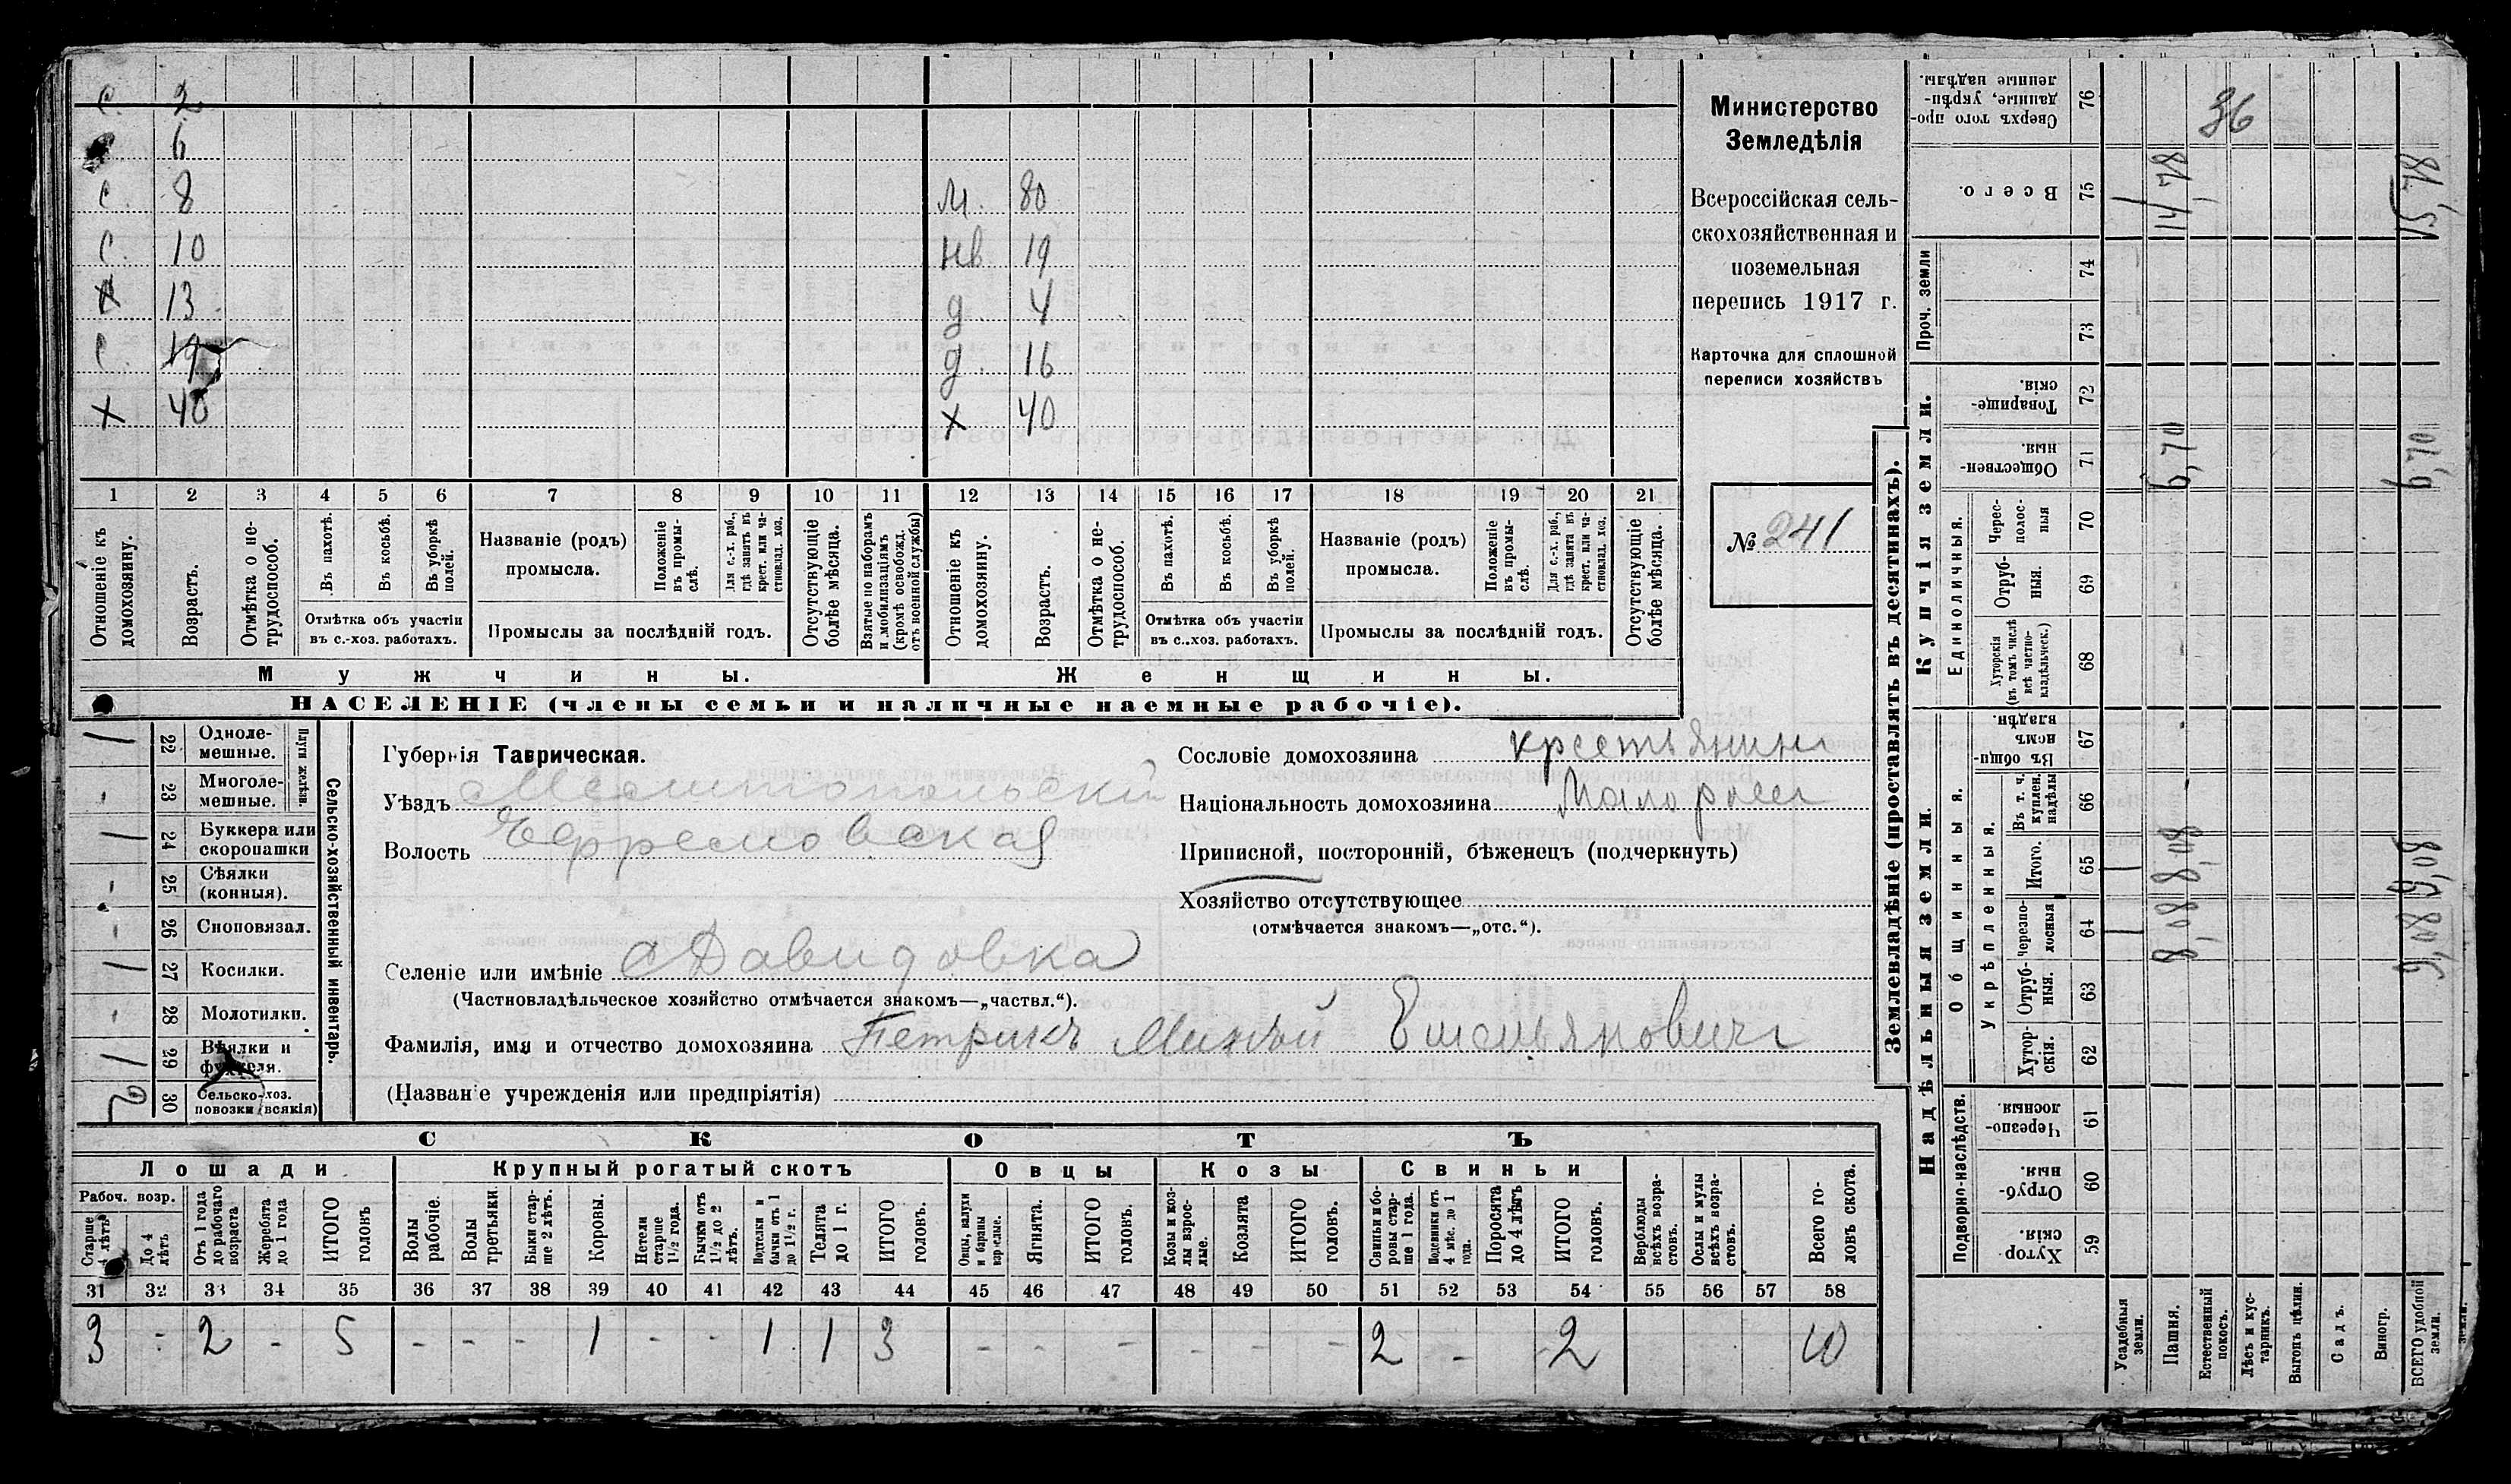 С. 2
6
С. 8
С. 10
13
С. 19
Х 40
М. 80
нв 19
д. 4
д. 16
Х 40
1 2 3 4 5 6 7 8 9 10 11 12 13 14 15 16 17 18 19 20 21
Отношеніе къ домохозяину.
Возрастъ.
Отмѣтка о не-трудоспособ.
Въ пахотѣ.
Въ косьбѣ.
Въ уборкѣ полей.
Отмѣтка объ участіи въ с.-хоз. работахъ.
Названіе (родъ) промысла.
Положеніе въ промы-слѣ.
Для с.-х. раб., гдѣ занятъ въ крест. или ча-стновлад. хоз.
Промыслы за послѣдній годъ.
Отсутствующіе болѣе мѣсяца.
Взятые по наборамъ и мобилизаціямъ (кромѣ освобожд. отъ военной службы)
Отношеніе къ домохозяину.
Возрастъ.
Отмѣтка о не-трудоспособ.
Въ пахотѣ.
Въ косьбѣ.
Въ уборкѣ полей.
Отмѣтка объ участіи въ с..хоз. работахъ.
Названіе (родъ) промысла.
Положеніе въ промы-слѣ.
Для с.-х. раб., гдѣ занята въ крест. или ча-стновлад. хоз.
Промыслы за послѣдній годъ.
Отсутствующіе болѣе мѣсяца.
Мужчины.
Женщины.
НАСЕЛЕНІЕ (члены семьи и наличные наемные рабочіе).
Министерство
Земледѣлія
Всероссійская сель-
скохозяйственная и
поземельная
перепись 1917 г.
Карточка для сплошной
переписи хозяйствъ
№ 241
Сельско-хозяйственный инвентарь.
Плуги желѣзн.
1 22 Одноле-мешные.
- 23 Многоле-мешные.
1 24 Буккера или скоропашки
- 25 Сѣялки (конныя).
- 26 Сноповязал.
1 27 Косилки.
- 28 Молотилки.
1 29 Вѣялки и
2 30 Сельско-хоз. повозки (всякія)
Губернія Таврическая.
Уѣздъ Мелитопольскій
Волость Ефремовская
Селеніе или имѣніе с Давидовка
(Частновладѣльческое хозяйство отмѣчается знакомъ—„частвл.“).
Фамилія, имя и отчество домохозяина Петрикъ Миней Емельяновичъ
(Названіе учрежденія или предпріятія)
Сословіе домохозяина крестьянинъ
Національность домохозяина Малороссъ
Приписной, посторонній, бѣженецъ (подчеркнуть)
Хозяйство отсутствующее
(отмѣчается знакомъ—„отс.“).
СКОТЪ
Лошади
Крупный рогатый скотъ
Овцы
Козы
Свиньи
Рабоч. возр.
Старше 4 лѣтъ
До 4 лѣтъ
Отъ 1 года до рабочаго возраста
Жеребята до 1 года
ИТОГО головъ
Волы рабочіе.
Волы третьяки.
Быки стар-ше 2 лѣтъ.
Коровы.
Нетели старше 1½ года.
Бычки отъ 1½ до 2 лѣтъ.
Подтелки и бычки отъ 1 до 1½ г.
Телята до 1 г.
ИТОГО головъ.
Овцы, валухи и бараны взрослые.
Ягнята.
ИТОГО головъ.
Козы и коз-лы взрос-лые.
Козлята
ИТОГО головъ.
Свиньи и бо-ровы стар-ше 1 года.
Подсвинки отъ 4 мѣс. до 1 года.
Поросята до 4 лѣтъ
ИТОГО головъ.
Верблюды всѣхъ возра-стовъ.
Ослы и мулы всѣхъ возра-стовъ.
Всего го-ловъ скота.
31 32 33 34 35 36 37 38 39 40 41 42 43 44 45 46 47 48 49 50 51 52 53 54 55 56 57 58
3 - 2 - 5 - - - 1 - - 1 1 3 - - - - - - 2 - - 2 10
Землевладѣніе (проставлять въ десятинахъ).
Надѣльныя земли.
Купчія земли.
Подворно-наслѣдств.
Общинныя.
Укрѣпленныя.
Единоличныя.
Проч. земли
Сверхъ того про-данные, укрѣп-ленные надѣлы. 76
Всего. 75
74
73
Товарище-скія. 72
Обществен-ныя. 71
Черес-полос-ныя 70
Отруб-ныя. 69
Хуторскія (въ томъ числѣ всѣ частно-владѣльческ.) 68
Въ общи-номъ владѣн. 67
Въ т. ч. куплен. надѣлы 66
Итого. 65
Черезпо-лосныя 64
Отруб-ныя. 63
Хутор-скія. 62
Черезпо-лосныя. 61
Отруб-ныя. 60
Хутор-скія. 59
Усадебныя земли.
Пашня.
Естественный покосъ.
Лѣсъ и кус-тарникъ.
Выгонъ цѣлин.
Садъ.
Виногр.
ВСЕГО удобной земли.
36
1 14,78 15,78
6,70 6,70
1 8,08 9,08
1 8,08 9,08